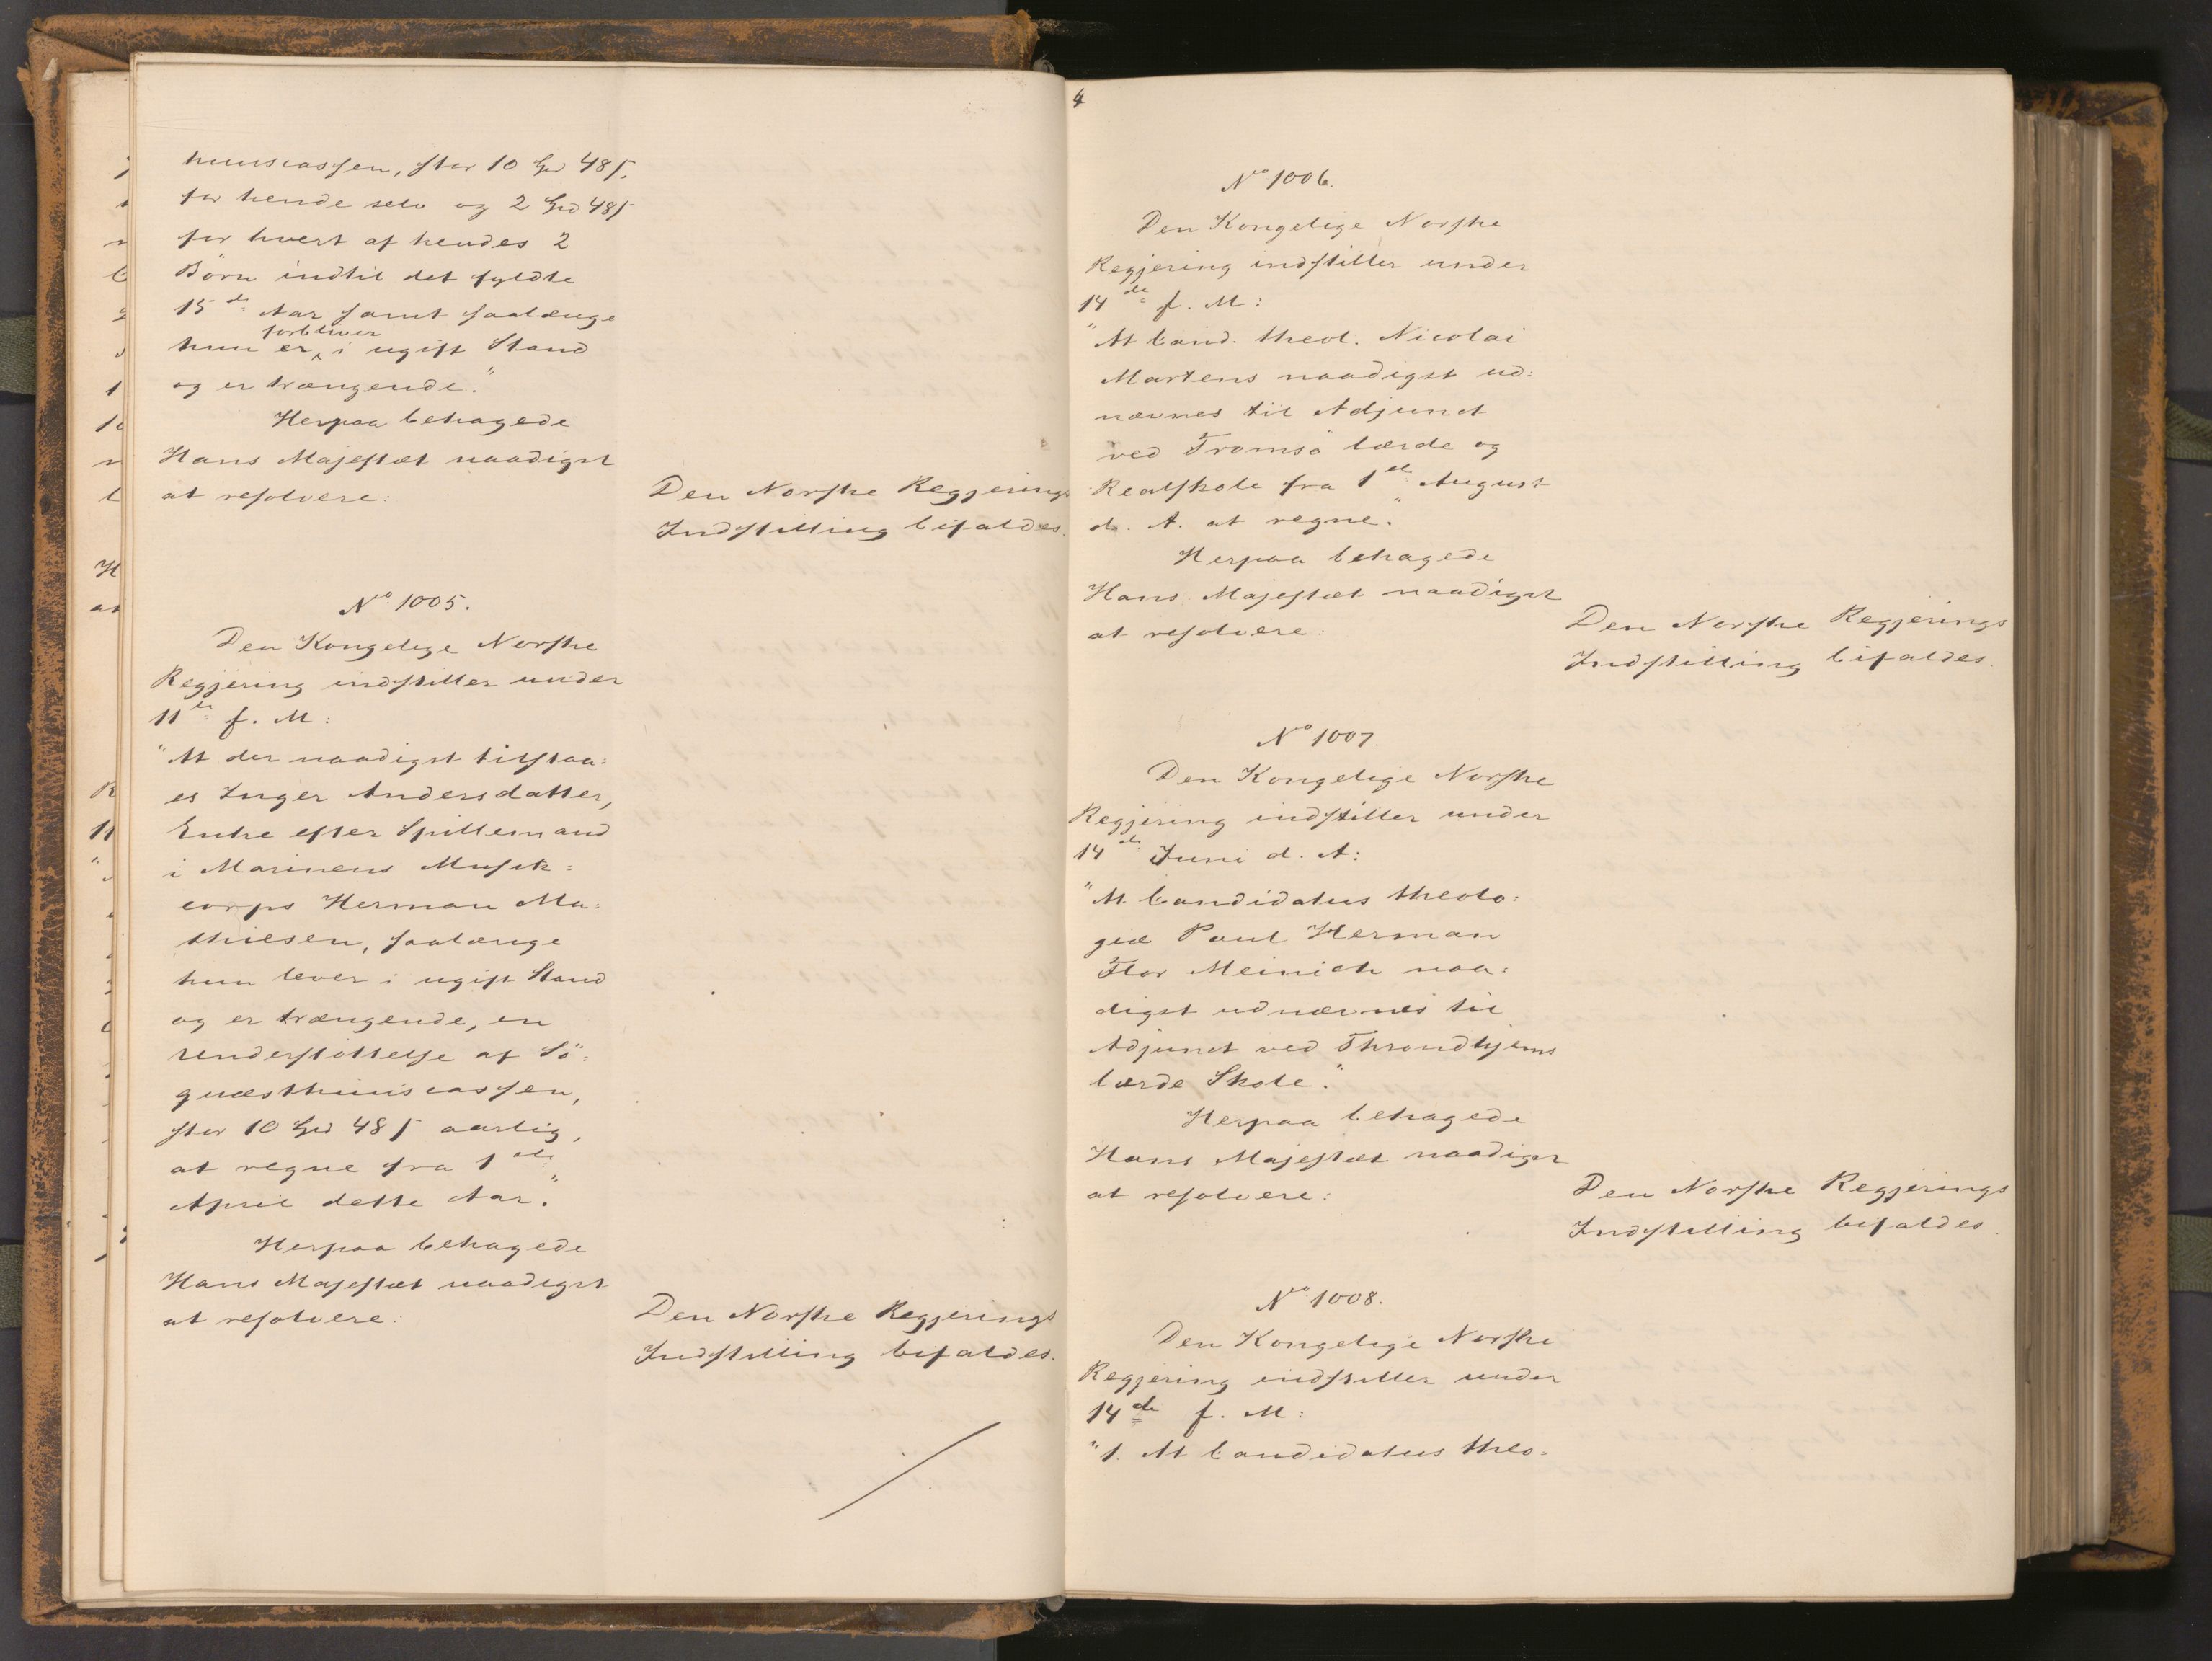 huuscassen, stor 10 Spd 48 ſ.
for hende selv og 2 Spd 48 ſ
for hvert af hendes 2
Börn indtil det fyldte
15de Aar samt saalænge
forbliver
hun er i ugift Stand
og er trængende."
Herpaa behagede
Hans Majestæt naadigst
at resolvere:
Den Norske Regjerings
Indstilling bifaldes.
No 1005.
Den Kongelige Norske
Regjering indstiller under
11te f. M:
"At der naadigst tilstaa=
es Inger Andersdatter,
Enke efter Spillemand
i Marinens Musik=
corps Herman Ma=
thiesen, saalænge
hun lever i ugift Stand
og er trængende, en
Understöttelse af Sö=
quæsthuuscassen,
stor 10 Spd 48 ſ aarlig,
at regne fra 1ste
April dette Aar."
Herpaa behagede
Hans Majestæt naadigst
at resolvere:
Den Norske Regjerings
Indstilling bifaldes.
4
No 1006.
Den Kongelige Norske
Regjering indstiller under
14de f. M:
"At Cand. theol. Nicolai
Martens naadigst ud=
nævnes til Adjunct
ved Tromsö lærde og
Realskole fra 1ste August
d. A. at regne."
Herpaa behagede
Hans Majestæt naadigst
at resolvere:
Den Norske Regjerings
Indstilling bifaldes.
No 1007.
Den Kongelige Norske
Regjering indstiller under
14de Juni d. A:
"At Candidatus theolo=
giæ Paul Herman
Flor Meinich naa=
digst udnævnes til
Adjunct ved Throndhjems
lærde Skole."
Herpaa behagede
Hans Majestæt naadigst
at resolvere:
Den Norske Regjerings
Indstilling bifaldes
No 1008.
Den Kongelige Norske
Regjering indstiller under
14de f. M:
"1. At Candidatus theo=